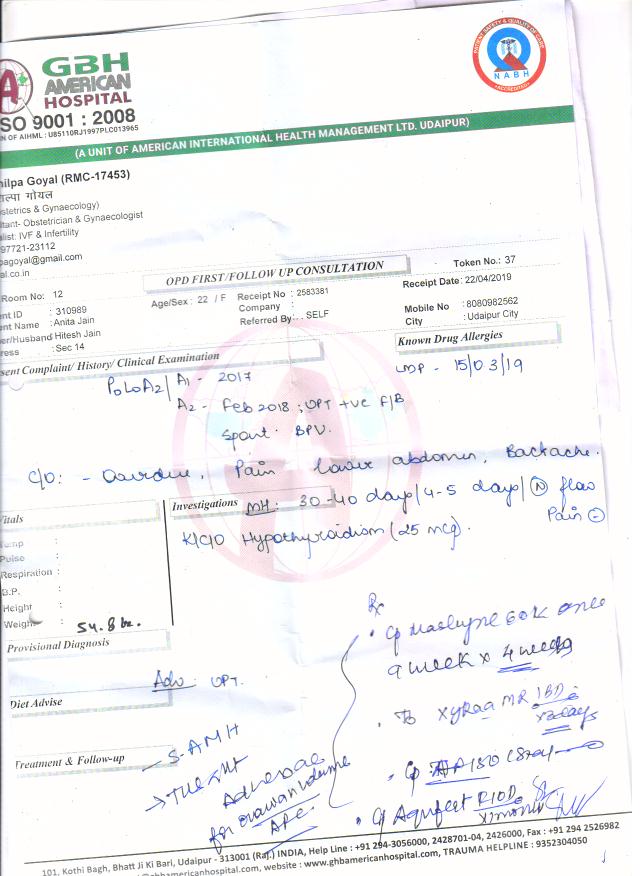 GBH
AMERICAN
HOSPITAL
SO 9001 : 2008
N OF AIHML : U85110RJ1997PLC013965
PATIENT SAFETY & QUALITY OF CARE
NABH
ACCREDITED
(A UNIT OF AMERICAN INTERNATIONAL HEALTH MANAGEMENT LTD. UDAIPUR)
hilpa Goyal (RMC-17453)
ल्पा गोयल
stetrics & Gynaecology)
ltant- Obstetrician & Gynaecologist
alist: IVF & Infertility
97721-23112
pagoyal@gmail.com
al.co.in
OPD FIRST/FOLLOW UP CONSULTATION
Token No.: 37
Room No: 12
Receipt Date: 22/04/2019
ent ID : 310989
Age/Sex : 22 / F
Receipt No : 2583381
Company :
Referred By: . SELF
Mobile No : 8080982562
City : Udaipur City
ent Name : Anita Jain
er/Husband Hitesh Jain
ress : Sec 14
Known Drug Allergies
sent Complaint/ History/ Clinical Examination
LMP - 15/03/19
P0L0A2/ A1 - 2017
A2 - Feb 2018 ; UPT +ve F/B
Spont. BPV.
C/O: - Pain lower abdomen, Backache.
Investigations
MH: 30-40 days/4-5 days/ N flow
Pain -
Vitals
K/C/O Hypothyroidism (25 mcg).
Temp :
Pulse :
Respiration :
B.P. :
Height :
Weight : 54.8
Provisional Diagnosis
Rx
60K once
a week x 4 weeks
Adv : UPT.
Diet Advise
Tb XYRAA MR 1BD
x 3 days
Treatment & Follow-up
S-AMH
for ovarian volume
AFC
101, Kothi Bagh, Bhatt Ji Ki Bari, Udaipur - 313001 (Raj.) INDIA, Help Line : +91 294-3056000, 2428701-04, 2426000, Fax : +91 294 2526982
@gbhamericanhospital.com, website : www.gbhamericanhospital.com, TRAUMA HELPLINE : 9352304050